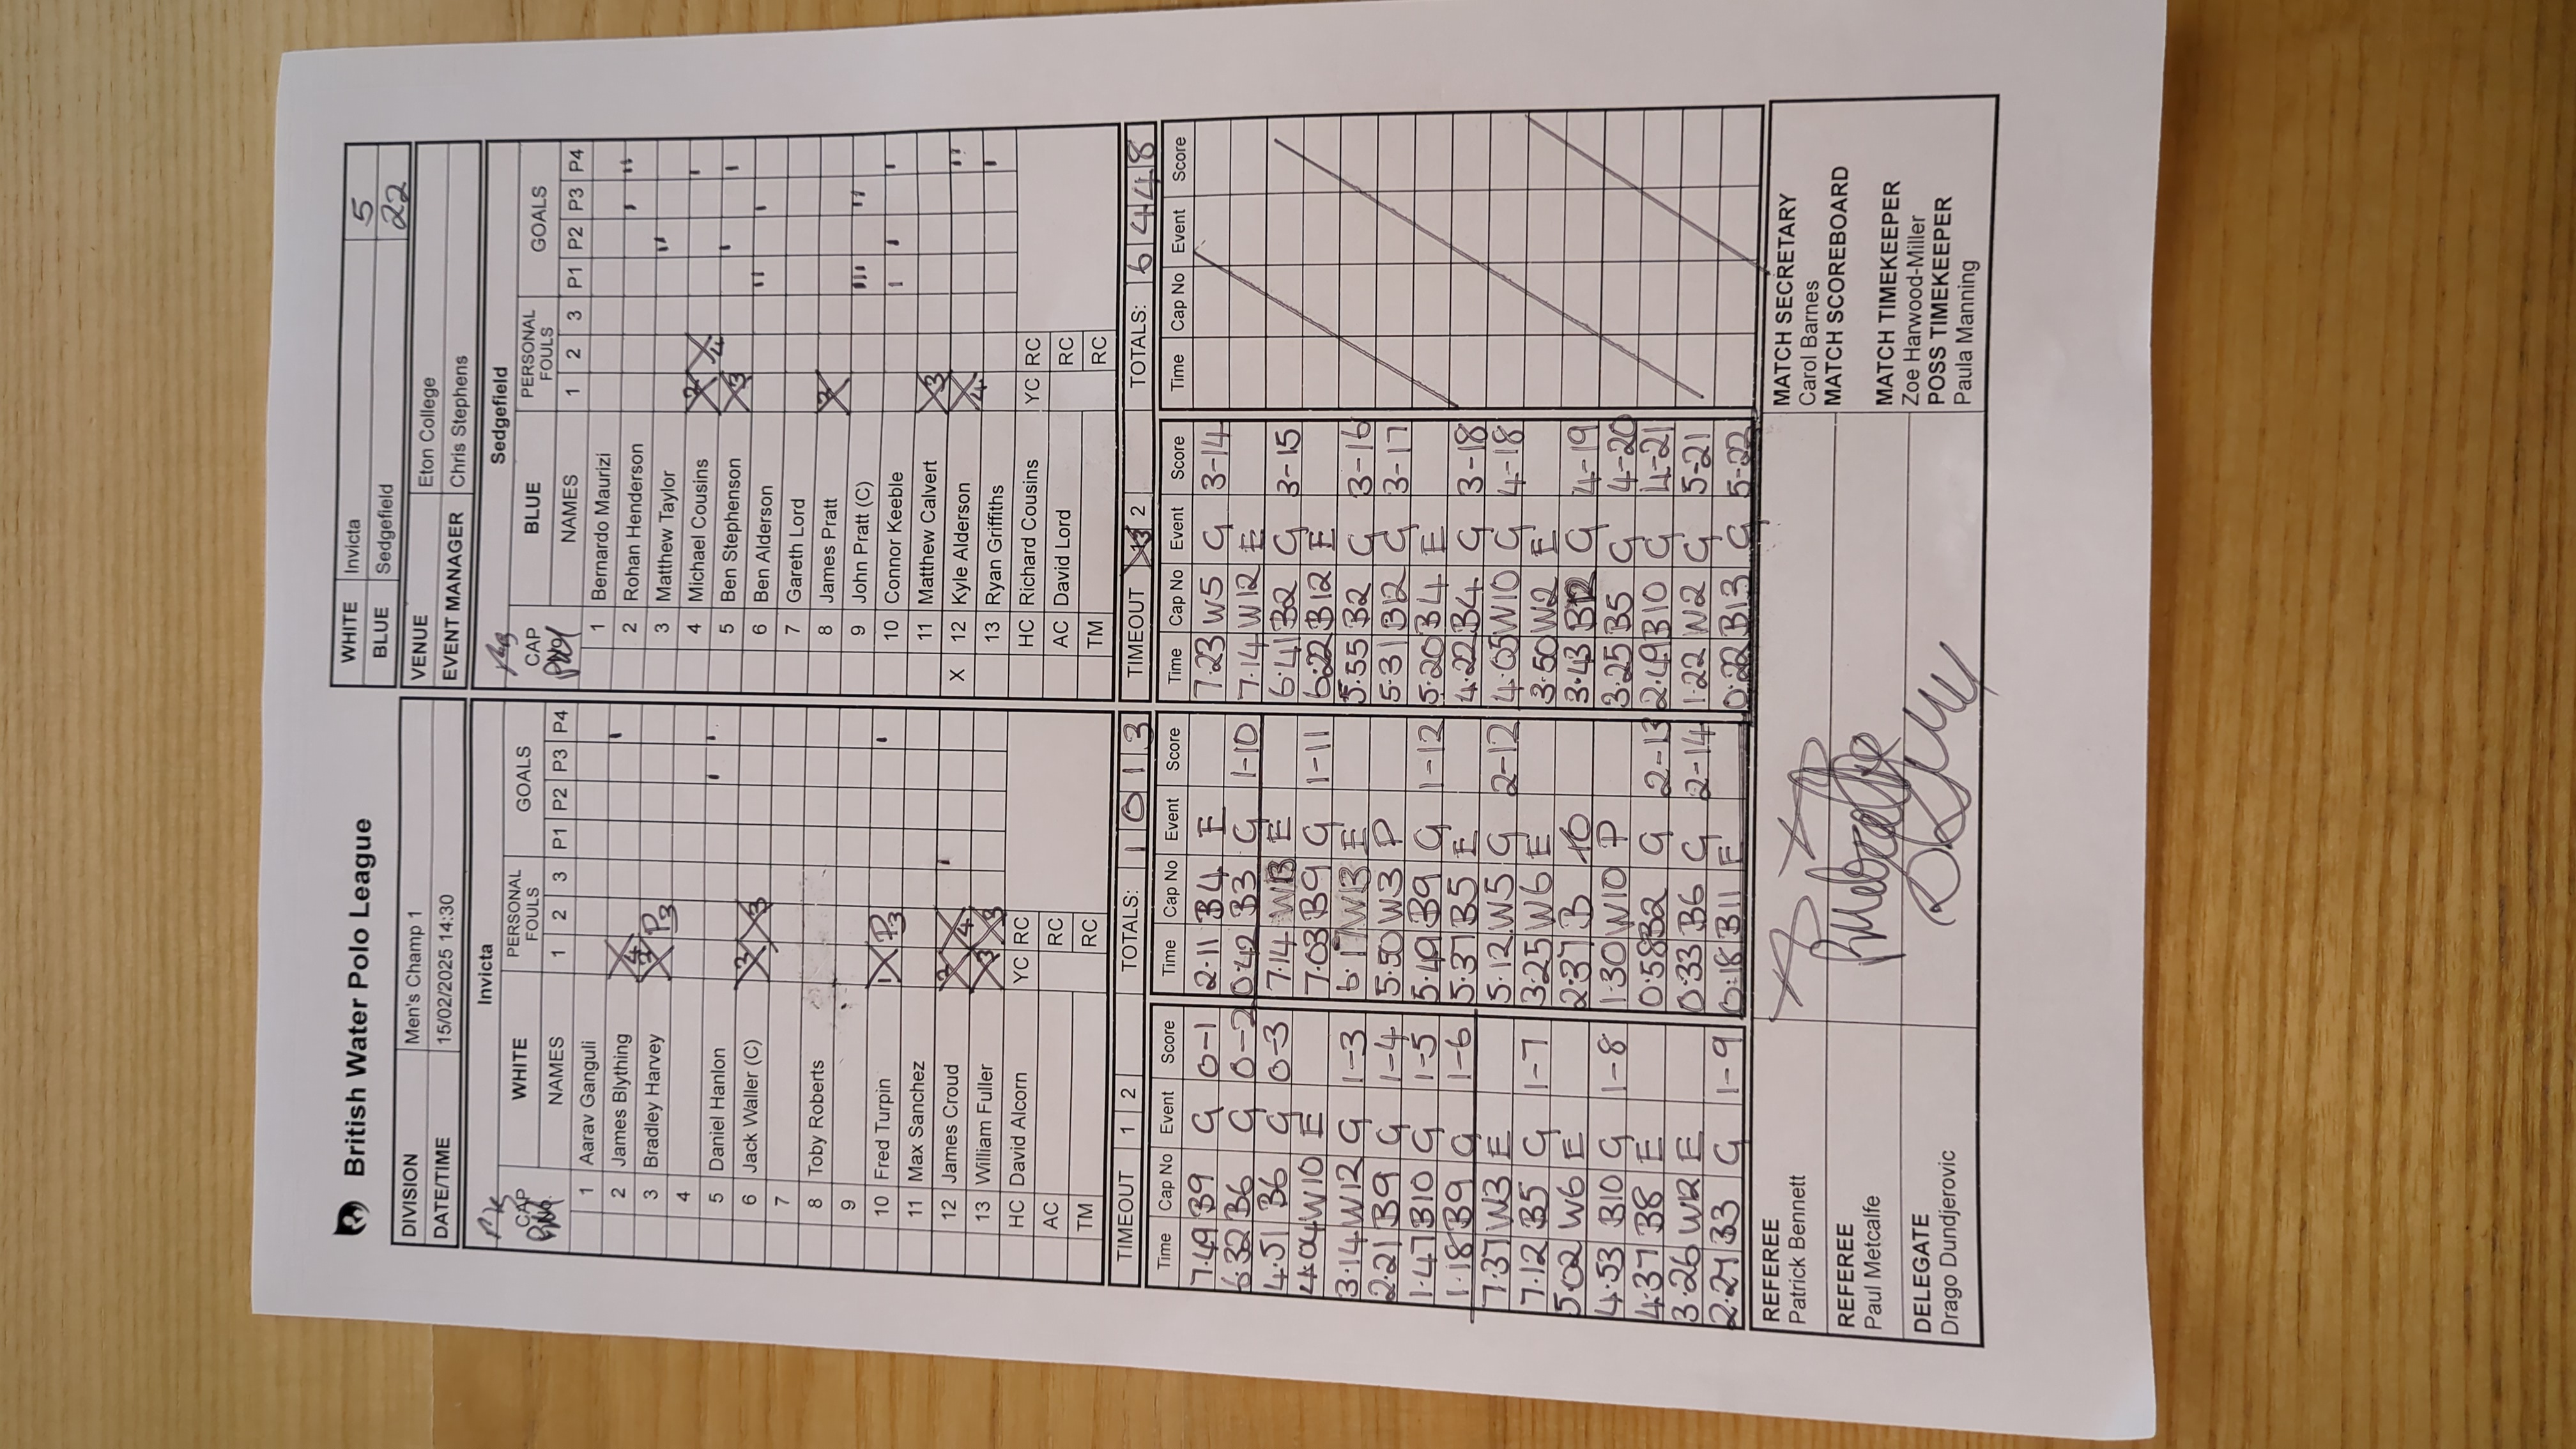 British Water Polo League
DIVISION Men's Champ 1
DATE/TIME 15/02/2025 14:30
WHITE Invicta 5
BLUE Sedgefield 22
VENUE Eton College
EVENT MANAGER Chris Stephens
Invicta
CAP WHITE PERSONAL FOULS GOALS
NAMES 1 2 3 P1 P2 P3 P4
1 Aarav Ganguli
2 James Blything 4
3 Bradley Harvey 2 P3
4
5 Daniel Hanlon
6 Jack Waller (C) 2 3
7
8 Toby Roberts
9
10 Fred Turpin 1 P3
11 Max Sanchez
12 James Croud 2 4
13 William Fuller 3 3
HC David Alcorn YC RC
AC RC
TM RC
TIMEOUT 1 2 TOTALS: 1 0 1 3
Sedgefield
CAP BLUE PERSONAL FOULS GOALS
NAMES 1 2 3 P1 P2 P3 P4
1 Bernardo Maurizi
2 Rohan Henderson
3 Matthew Taylor
4 Michael Cousins 2 4
5 Ben Stephenson 3
6 Ben Alderson
7 Gareth Lord
8 James Pratt 2
9 John Pratt (C)
10 Connor Keeble
11 Matthew Calvert 3
X 12 Kyle Alderson 4
13 Ryan Griffiths
HC Richard Cousins YC RC
AC David Lord RC
TM RC
TIMEOUT 2 TOTALS: 6 4 4 8
Time Cap No Event Score
7.49 B9 G 0-1
6.32 B6 G 0-2
4.51 B6 G 0-3
4.04 W10 E
3.14 W12 G 1-3
2.21 B9 G 1-4
1.47 B10 G 1-5
1.18 B9 G 1-6
7.37 W3 E
7.12 B5 G 1-7
5.02 W6 E
4.53 B10 G 1-8
4.37 B8 E
3.26 W12 E
2.27 B3 G 1-9
Time Cap No Event Score
2.11 B4 E
0.42 B3 G 1-10
7.14 W13 E
7.03 B9 G 1-11
6.17 W13 E
5.50 W3 P
5.49 B9 G 1-12
5.37 B5 E
5.12 W5 G 2-12
3.25 W6 E
2.37 B TO
1.30 W10 P
0.58 B2 G 2-13
0.33 B6 G 2-14
0.18 B11 E
Time Cap No Event Score
7.23 W5 G 3-14
7.14 W12 E
6.41 B2 G 3-15
6.22 B12 E
5.55 B2 G 3-16
5.31 B12 G 3-17
5.20 B4 E
4.22 B4 G 3-18
4.05 W10 G 4-18
3.50 W2 E
3.43 B12 G 4-19
3.25 B5 G 4-20
2.49 B10 G 4-21
1.22 W2 G 5-21
0.22 B13 G 5-22
Time Cap No Event Score
REFEREE
Patrick Bennett
REFEREE
Paul Metcalfe
DELEGATE
Drago Dundjerovic
MATCH SECRETARY
Carol Barnes
MATCH SCOREBOARD
MATCH TIMEKEEPER
Zoe Harwood-Miller
POSS TIMEKEEPER
Paula Manning